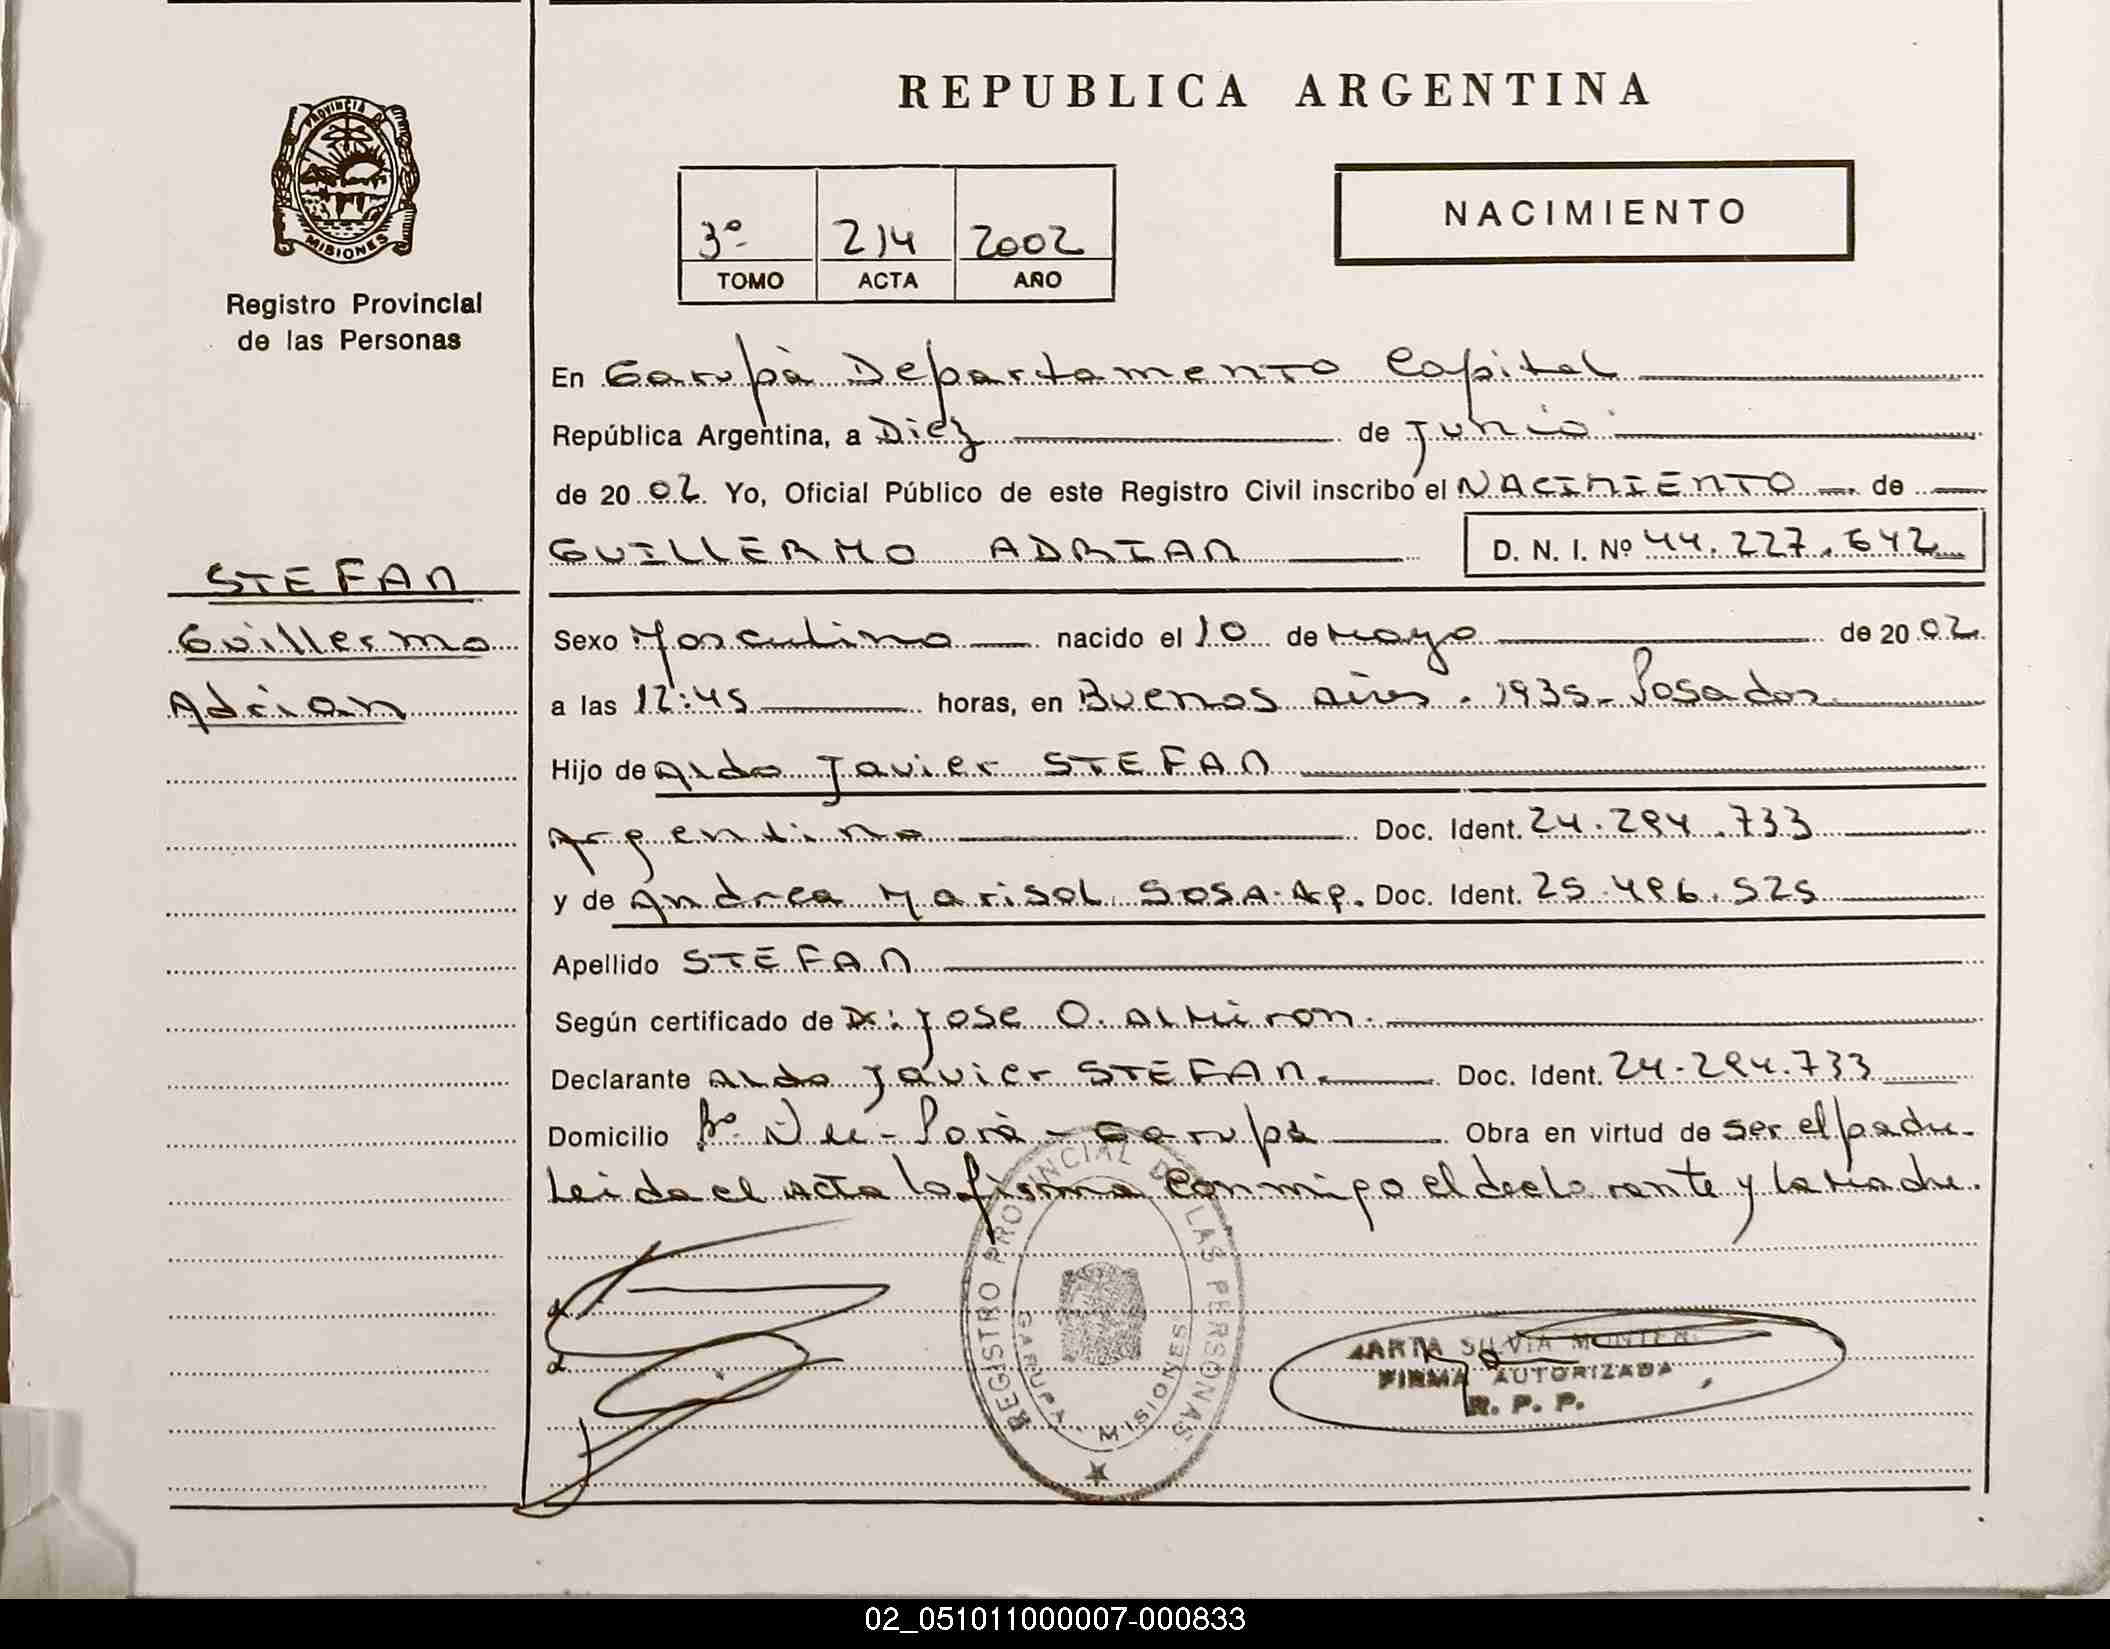 REPUBLICA ARGENTINA
PROVINCIA DE
MISIONES
Registro Provincial
de las Personas
3º 214 2002
TOMO ACTA AÑO
NACIMIENTO
En Garupà Departamento Capital
República Argentina, a Diez de Junio
de 2002 Yo, Oficial Público de este Registro Civil inscribo el NACIMIENTO de
GUILLERMO ADRIAN D. N. I. Nº 44.227.642
STEFAN
Guillermo
Adrian
Sexo Masculino nacido el 10 de Mayo de 2002
a las 12:45 horas, en Buenos Aires . 1935 - Posadas
Hijo de Aldo Javier STEFAN
Argentino Doc. Ident. 24.294.733
y de Andrea Marisol SOSA. Ar. Doc. Ident. 25.496.525
Apellido STEFAN
Según certificado de Dr: Jose O. Almiron.
Declarante Aldo Javier STEFAN. Doc. Ident. 24-294.733
Domicilio Bº Ñu - Porà - Garupà Obra en virtud de ser el padre.
Leida el Acta la firma Conmigo el declarante y la Madre.
REGISTRO PROVINCIAL DE LAS PERSONAS
GARUPA MISIONES
SILVIA
FIRMA AUTORIZADA
R. P. P.
02_051011000007-000833